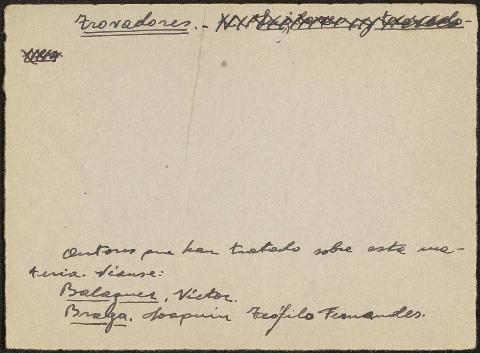 Trovadores.-
Autores que han tratado sobre esta ma-
teria. Véanse:
Balaguer, Víctor.
Braga. Joaquin Teófilo Fernandes.